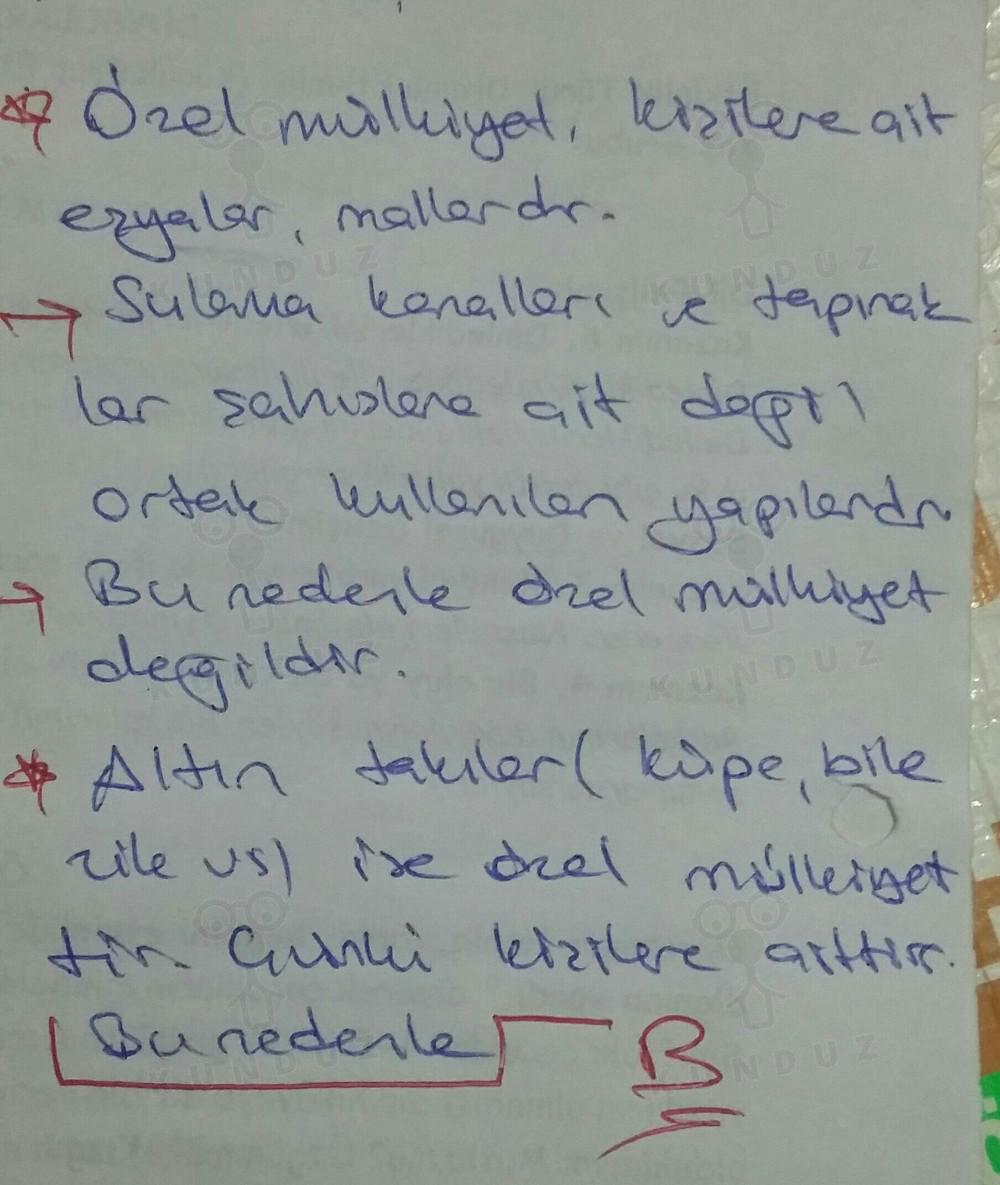 * Özel mülkiyet, kişilere ait
eşyalar, mallardır.
→ Sulama kanalları ve tapınak
lar şahıslara ait değil
ortak kullanılan yapılardır.
→ Bu nedenle özel mülkiyet
değildir.
* Altın takılar ( küpe, bile
zik vs) ise özel mülkiyet
tir. Çünkü kişilere aittir.
Bu nedenle B
KUNDUZ
KUNDUZ
KUNDUZ
KUNDUZ
KUNDUZ